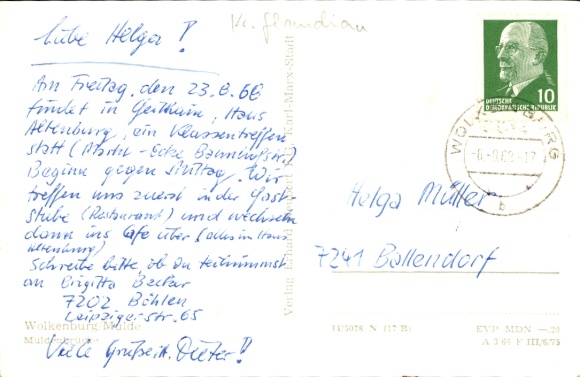 Liebe Helga!
Am Freitag, den 23.8.68
findet in Geithain, Haus
Altenburg, ein Klassentreffen
statt (Markt - Ecke Bahnhofstr.)
Beginn gegen Mittag. Wir
treffen uns zuerst in der Gast-
stube (Restaurant) und wechseln
dann ins Cafe über (alles im Haus
Altenburg)
Schreibe bitte, ob Du teilnimmst
an Brigitta Becker
7202 Böhlen
Leipziger-Str. 65
Viele Grüße Dieter!
Wolkenburg Mulde
Muldenbrücke
Kr.
Verlag Erhard Karl-Marx-Stadt
DEUTSCHE
DEMOKRATISCHE REPUBLIK
10
WOLKENBURG
b
Helga Müller
7241 Ballendorf
14/5078 N (17 B)
EVP MDN —.20
A 3 66 F III/6/75